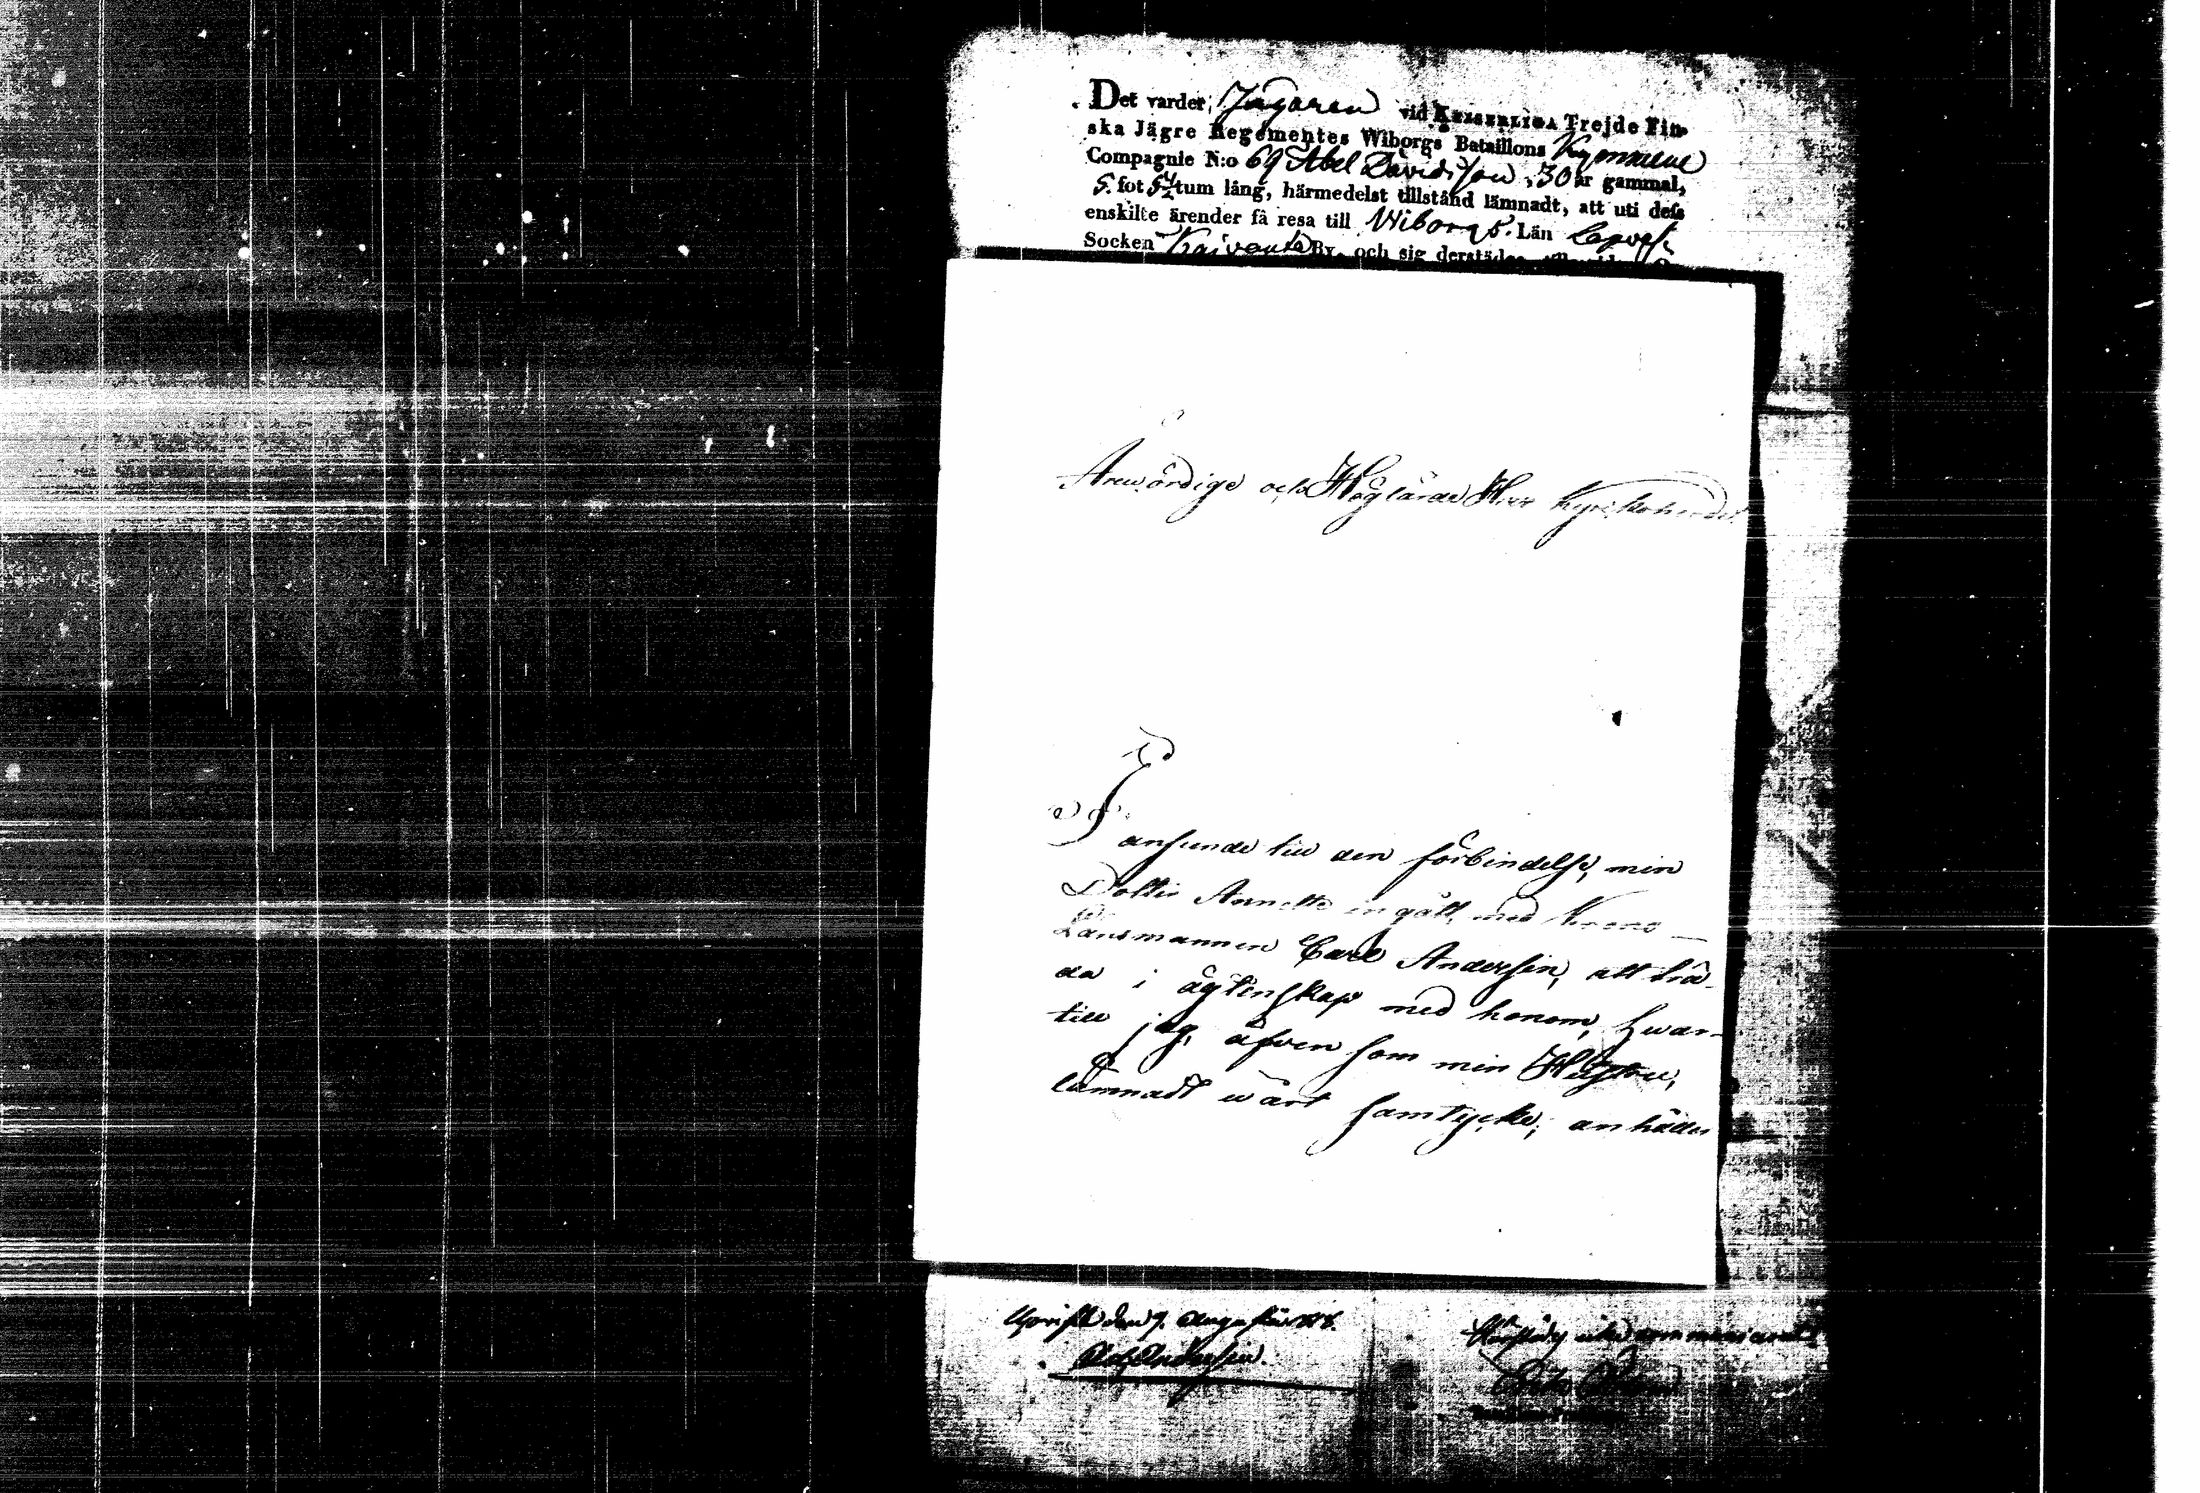 Det varder, Jägaren vid KEISERLIGA Trejde Fin-
ska Jägre Regementes Wiborgs Bataillons Kymmene
Compagnie N:o 69 Abel Davidsson, 30 år gammal,
5 fot 5½ tum lång, härmedelst tillstånd lämnadt, att uti dess
enskilte ärender få resa till Wiborgs Län
Socken By, och sig derstädes
Ärewördige och Höglärde Herr Kyrkoherde!
I anseende till den förbindelse, min
Dotter Annette ingått, med Krono-
Länsmannen Carl Andersin, att trä-
da i ägtenskap med honom, hwar-
till jag, äfven som min Hustru,
lämnadt wårt samtycke; anhåller
den 7. Augusti